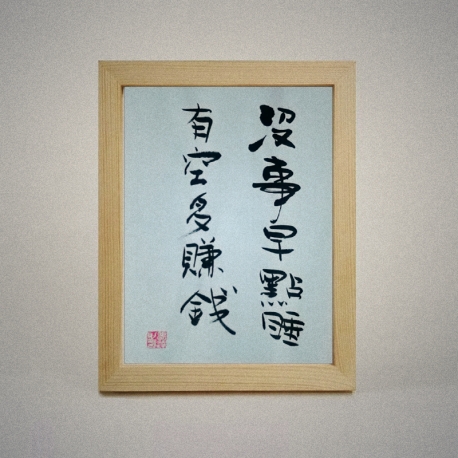 沒事早點睡
有空多賺錢